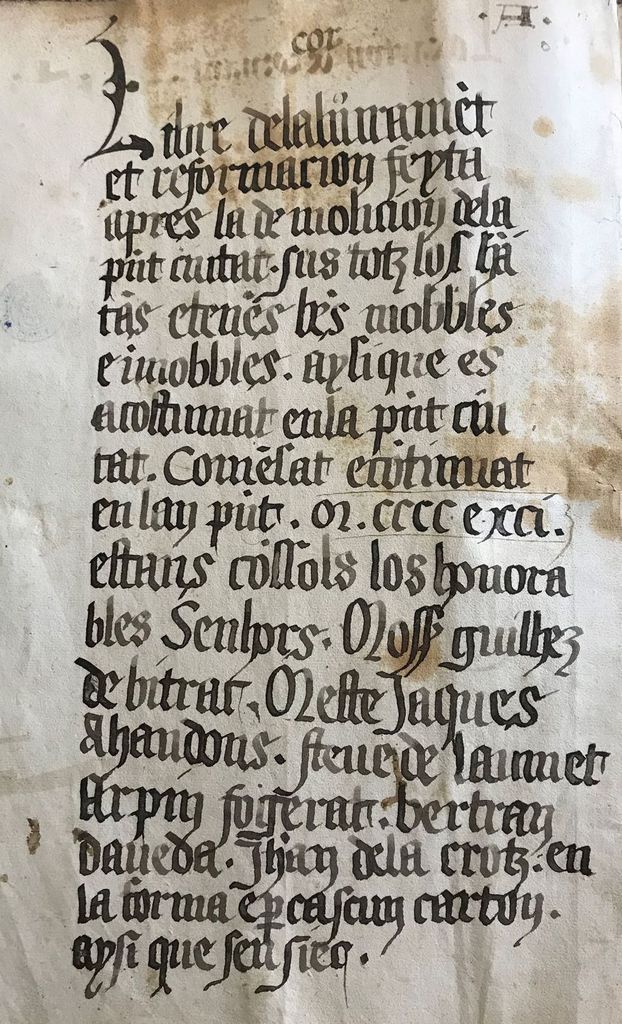 ·A·
cor
Libre delaliuramēt
et reformacion feyta
apres la de molicion dela
pn̄t ciutat. sus totz los hā
tās eteñēs bēs mobbles
e imobbles. aysique es
acostumat enla pn̄t ciu
tat. Comēsat ecōtinuat
en lan pn̄t. M. CCCC e xci.
estans cōssols los honora
bles Senhors. Moss guilhez
de bitrac. Meste Jaques
Ahandons. steue de launet
Arpin fogerat. bertran
daueda. Jhan dela crotz. en
la forma e ꝑ cascun carton.
aysi que sen siec.